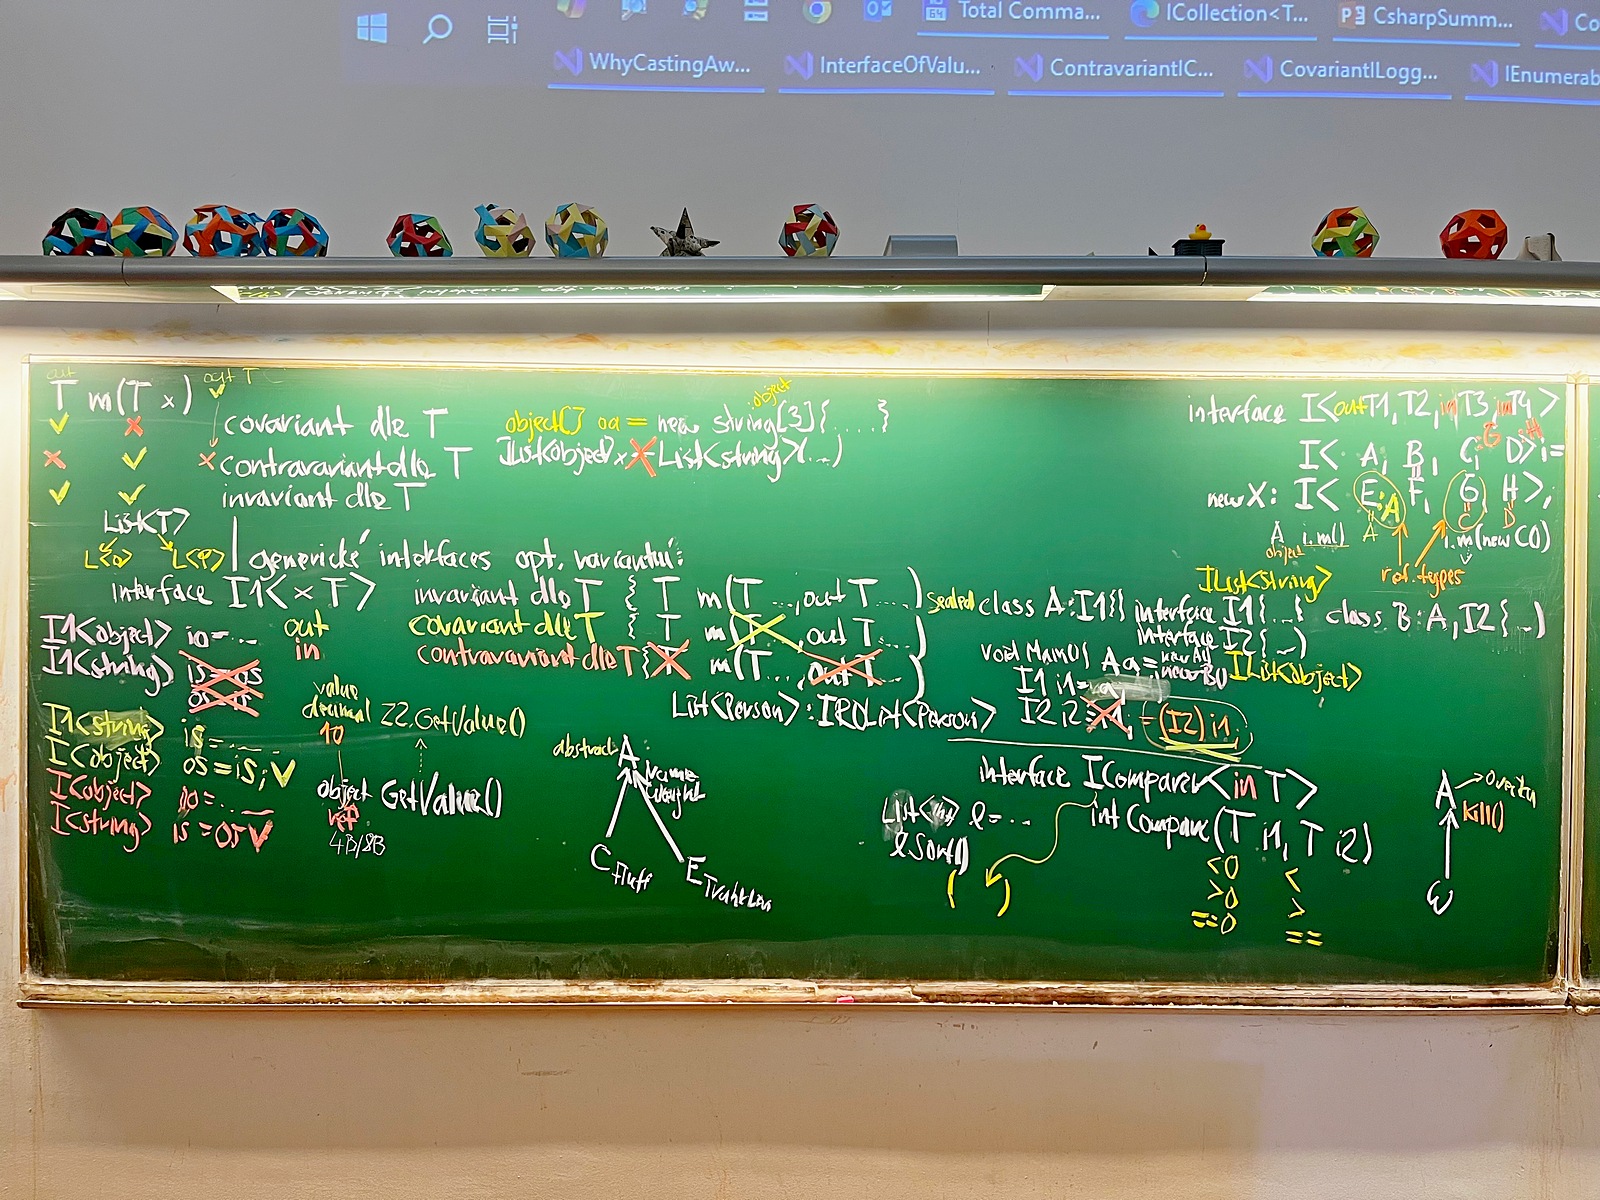 Total Comma...
ICollection<T...
CsharpSumm...
Co
WhyCastingAw...
InterfaceOfValu...
ContravariantIC...
CovariantILogg...
IEnumerab
out
T m(T x)
out T
covariant dle T
contravariant dle T
invariant dle T
List<T>
generické interfaces opt. variantní:
interface I1< x T>
out
in
I1<object> io = ...
I1<string>
I1<string> is = ...
I<object> os = is;
I<object> io = ...
I<string> is = os
value
decimal
10
Z2.GetValue()
object GetValue()
ref
4B/8B
object
object[] oa = new string[3]{ ..... }
IList<object> x = List<string>(...)
invariant dle T { T m(T ..., out T ...)
covariant dle T { T m(T , out T ...)
contravariant dle T { T m(T ... out T ...)
List<Person> : IROList<Person>
abstract A
Name
Weight
C Fluff
E
interface I<out T1, T2, in T3, in T4>
G H
I< A, B, C, D> i =
new X: I< E:A F, G H >;
C D
A i.m() A
object
i.m(new C())
ref. types
IList<string>
sealed class A : I1{} interface I1{...}
class B : A, I2{...}
interface I2{...}
void Main() A a = new A()
new B()
IList<object>
I1 i1 = a;
I2 i2 = i1; = (I2) i1;
interface IComparer<in T>
int Compare(T i1, T i2)
List<int> l = ...
l.Sort()
( )
<0 <
>0 >
==0 ==
A
Kill()